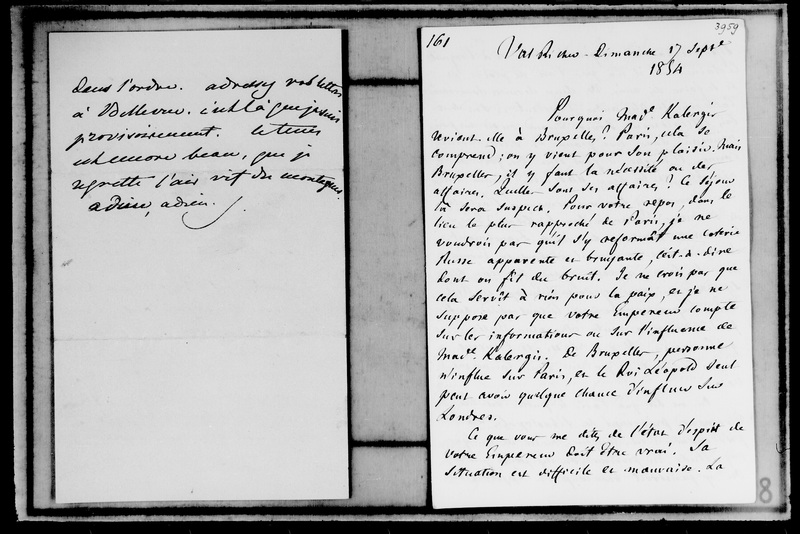 dans l'ordre. adressez vos lettres
à Bellevue. c'est là que je suis
provisoirement. le tems
est encore beau, que je
regrette l'air vif des montagnes.
adieu, adieu.
3959
161
Val Richer - Dimanche 17 Septe
1854
Pourquoi Made Kalergis
revient-elle à Bruxelles? Paris, cela se
comprend; on y vient pour son plaisir. Mais
Bruxelles, il y faut la nécessité ou des
affaires. Quelles sont ses affaires? Ce séjour
là sera suspect. Pour votre repos, dans le
lieu le plus rapproché de Paris, je ne
voudrois pas qu'il s'y reformât une coterie
Russe apparente et bruyante, c'est-à-dire
dont on fît du bruit. Je ne crois pas que
cela servît à rien pour la paix, et je ne
suppose pas que votre Empereur compte
sur les informations ou sur l'influence de
Made Kalergis. De Bruxelles, personne
n'influe sur Paris, et le Roi Léopold seul
peut avoir quelque chance d'influer sur
Londres.
Ce que vous me dites de l'état d'esprit de
votre Empereur doit être vrai. Sa
situation est difficile et mauvaise. La
8